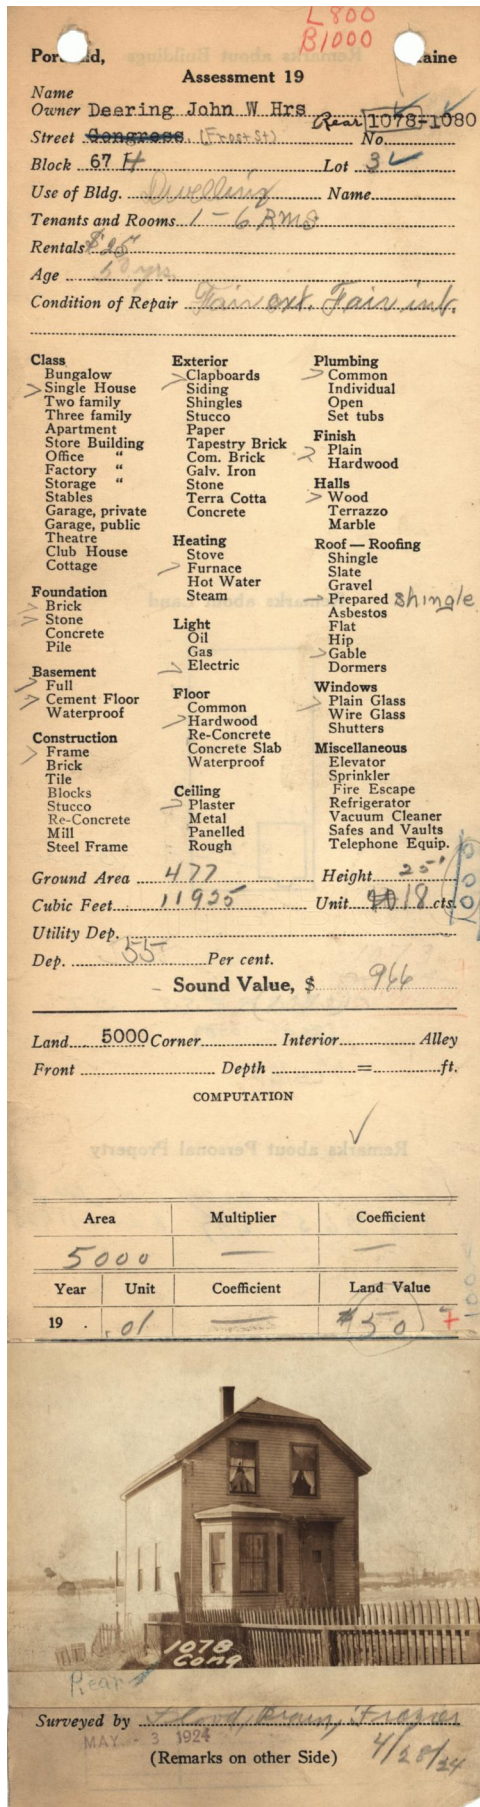 L800
B1000
Portland, Maine
Assessment 19
Name
Owner Deering John W Hrs
Rear 1078-1080
Street Congress. (Frost St) No.
Block 67 H Lot 3
Use of Bldg. Dwelling Name
Tenants and Rooms 1 - 6 RMS
Rentals $25
Age 50 yrs.
Condition of Repair Fair ext. Fair int.
Class
Bungalow
Single House
Two family
Three family
Apartment
Store Building
Office "
Factory "
Storage "
Stables
Garage, private
Garage, public
Theatre
Club House
Cottage
Foundation
Brick
Stone
Concrete
Pile
Basement
Full
Cement Floor
Waterproof
Construction
Frame
Brick
Tile
Blocks
Stucco
Re-Concrete
Mill
Steel Frame
Exterior
Clapboards
Siding
Shingles
Stucco
Paper
Tapestry Brick
Com. Brick
Galv. Iron
Stone
Terra Cotta
Concrete
Heating
Stove
Furnace
Hot Water
Steam
Light
Oil
Gas
Electric
Floor
Common
Hardwood
Re-Concrete
Concrete Slab
Waterproof
Ceiling
Plaster
Metal
Panelled
Rough
Plumbing
Common
Individual
Open
Set tubs
Finish
Plain
Hardwood
Halls
Wood
Terrazzo
Marble
Roof — Roofing
Shingle
Slate
Gravel
Prepared Shingle
Asbestos
Flat
Hip
Gable
Dormers
Windows
Plain Glass
Wire Glass
Shutters
Miscellaneous
Elevator
Sprinkler
Fire Escape
Refrigerator
Vacuum Cleaner
Safes and Vaults
Telephone Equip.
Ground Area 477 Height 25'
Cubic Feet 11925 Unit 18 cts.
1000
Utility Dep.
Dep. 55 Per cent.
Sound Value, $ 966
Land 5000 Corner Interior Alley
Front Depth = ft.
COMPUTATION
Remarks about Personal Property
Area Multiplier Coefficient
5000 — —
Year Unit Coefficient Land Value
19 . .01 — $50
1078
Cong
Rear
Surveyed by Flood, Brain, Frazier
MAY - 3 1924
4/28/24
(Remarks on other Side)